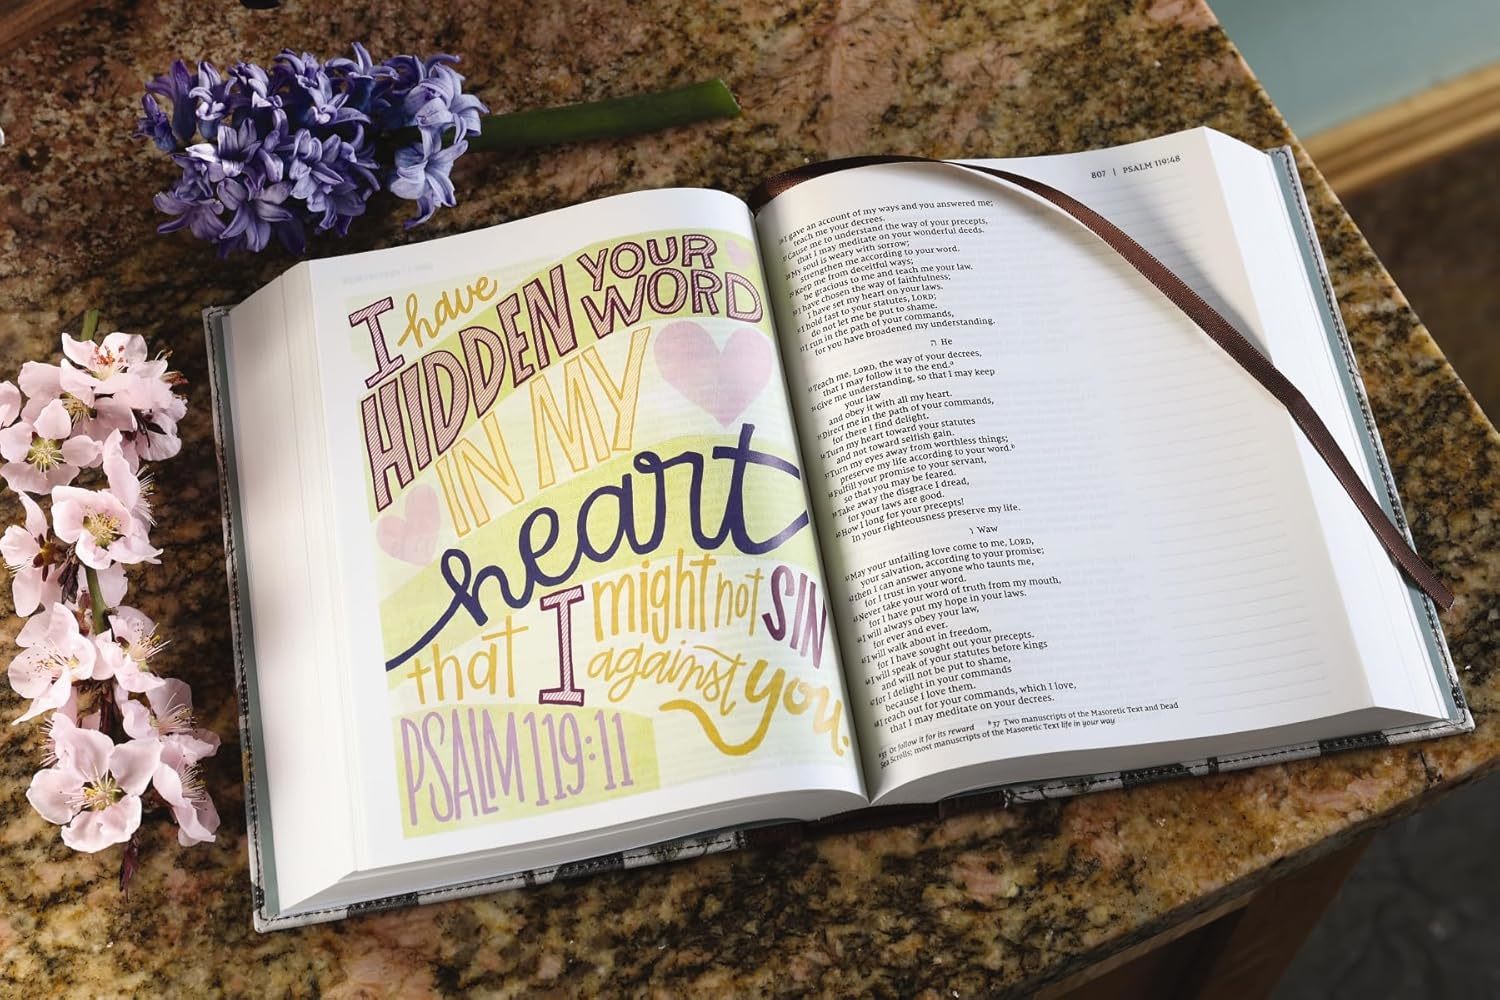 I have
HIDDEN YOUR WORD
IN MY
heart
that I might not SIN
against you.
PSALM 119:11
807 | PSALM 119:48
26 I gave an account of my ways and you answered me;
teach me your decrees.
27 Cause me to understand the way of your precepts,
that I may meditate on your wonderful deeds.
28 My soul is weary with sorrow;
strengthen me according to your word.
29 Keep me from deceitful ways;
be gracious to me and teach me your law.
30 I have chosen the way of faithfulness;
I have set my heart on your laws.
31 I hold fast to your statutes, LORD;
do not let me be put to shame.
32 I run in the path of your commands,
for you have broadened my understanding.
ה He
33 Teach me, LORD, the way of your decrees,
that I may follow it to the end.a
34 Give me understanding, so that I may keep
your law
and obey it with all my heart.
35 Direct me in the path of your commands,
for there I find delight.
36 Turn my heart toward your statutes
and not toward selfish gain.
37 Turn my eyes away from worthless things;
preserve my life according to your word.b
38 Fulfill your promise to your servant,
so that you may be feared.
39 Take away the disgrace I dread,
for your laws are good.
40 How I long for your precepts!
In your righteousness preserve my life.
ו Waw
41 May your unfailing love come to me, LORD,
your salvation, according to your promise;
42 then I can answer anyone who taunts me,
for I trust in your word.
43 Never take your word of truth from my mouth,
for I have put my hope in your laws.
44 I will always obey your law,
for ever and ever.
45 I will walk about in freedom,
for I have sought out your precepts.
46 I will speak of your statutes before kings
and will not be put to shame,
47 for I delight in your commands
because I love them.
48 I reach out for your commands, which I love,
that I may meditate on your decrees.
a 33 Or follow it for its reward b 37 Two manuscripts of the Masoretic Text and Dead
Sea Scrolls; most manuscripts of the Masoretic Text life in your way